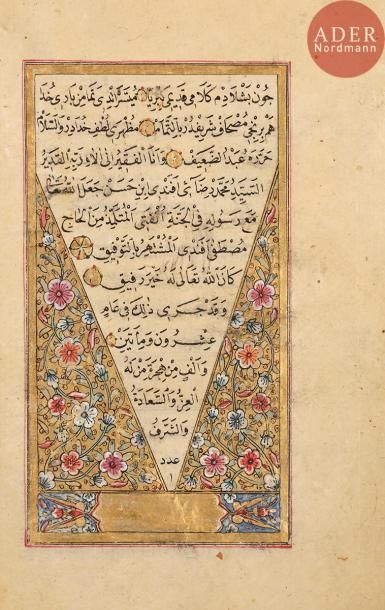 ADER
Nordmann
چون بشلادم كلامى قديمى بى ريا ميسر اتدى تمامن بارى خدا
هم برنجى مصحف شريفدر بالتمام مظهرى لطف خدا اود والسلام
حرره عبد الضعيف وانا الفقير الى الاء رب القدير
السيد محمد رضائى افندى ابن حسن جعل الله
مع رسوله فى الجنة المتلمذ من الحاج
مصطفى افندى المشتهر بالتوفيق
كان الله تعالى له خير رفيق
وقد جرى ذلك فى عام
عشرون ومأتين
والف من هجرة من له
العز والسعادة
والشرف
عدد
١